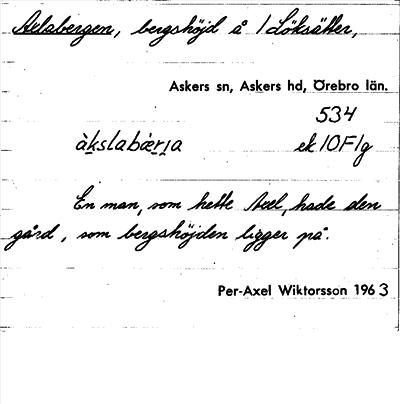 Axlabergen, bergshöjd å 1 Löksätter,
Askers sn, Askers hd, Örebro län.
534
àkslabæ̀rja ek 10F1g
En man, som hette Axel, hade den
gård, som bergshöjden ligger på.
Per-Axel Wiktorsson 1963